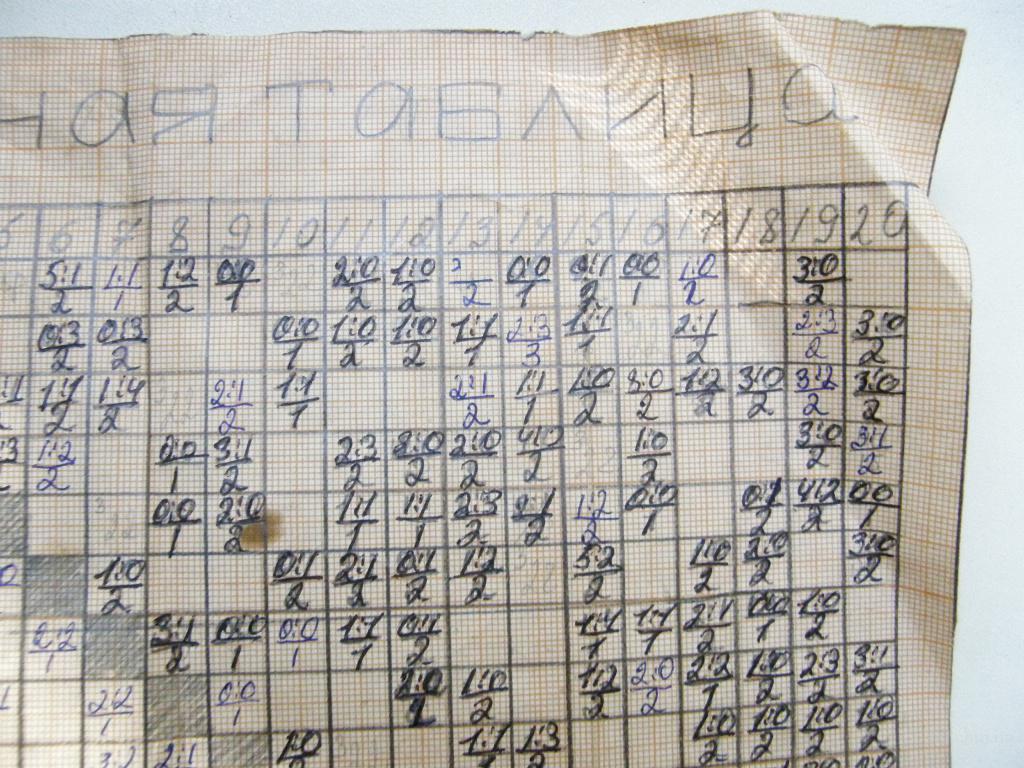 ная таблица
5 6 7 8 9 10 11 12 13 14 15 16 17 18 19 20
5:1/2 1:1/1 1:2/2 0:0/1 2:0/2 1:0/2 /2 0:0/1 0:1/2 0:0/1 1:0/2 3:0/2
0:3/2 0:3/2 0:0/1 1:0/2 1:0/2 1:1/1 2:3/3 1:1/1 2:1/2 2:3/2 3:0/2
1:1/2 1:4/2 2:1/2 1:1/1 2:1/2 1:1/1 1:0/2 3:0/2 1:2/2 3:0/2 3:2/2 3:0/2
1:2/2 0:0/1 3:1/2 2:3/2 2:0/2 2:0/2 4:0/2 1:0/2 3:0/2 3:1/2
0:0/1 2:0/2 1:1/1 1:1/1 2:3/2 2:1/2 1:2/2 0:0/1 0:1/2 4:2/2 0:0/1
1:0/2 0:1/2 2:1/2 0:1/2 1:2/2 5:2/2 1:0/2 2:0/2 3:0/2
2:2/1 3:1/2 0:0/1 0:0/1 1:1/1 0:1/2 1:1/1 1:1/1 2:1/2 0:0/1 1:0/2
2:2/1 0:0/1 2:0/2 1:0/2 1:2/2 2:0/2 2:2/1 1:0/2 2:3/2 3:1/2
3:2 2:1 1:0/2 1:1/1 1:3/2 1:0/2 1:0/2 1:0/2 1:0/2